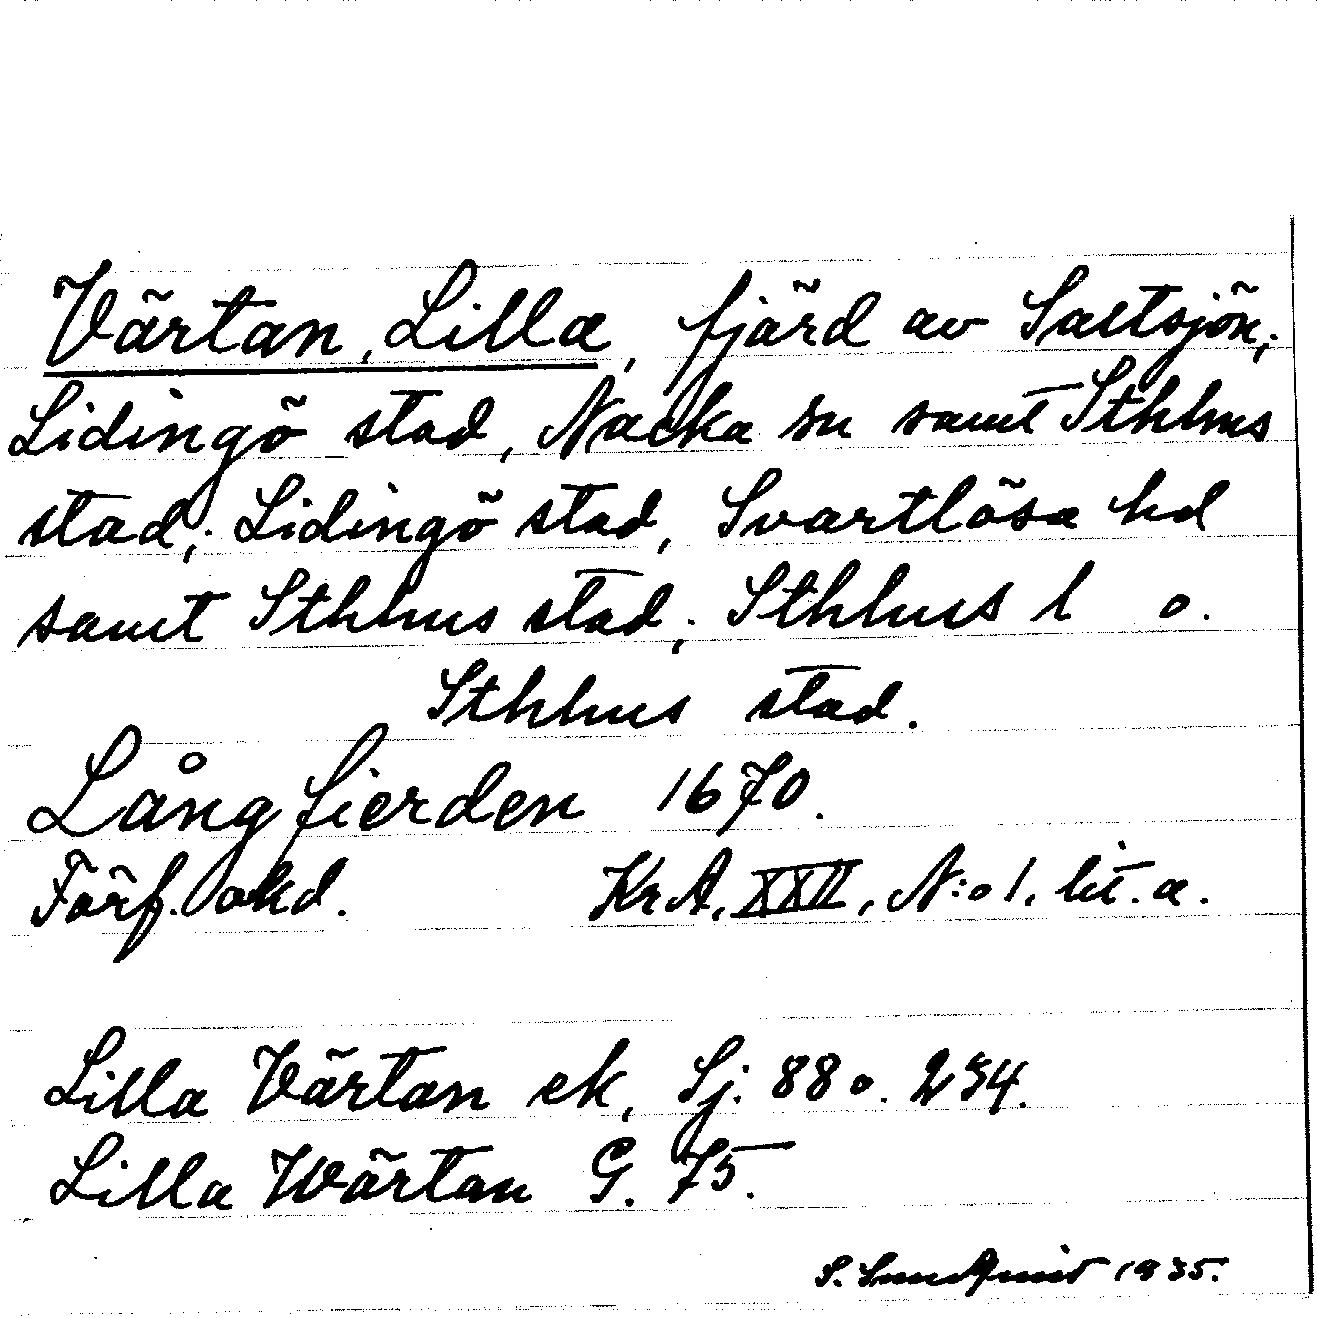 Värtan, Lilla, fjärd av Saltsjön;
Lidingö stad, Nacka sn samt Sthlms
stad; Lidingö stad, Svartlösa hd
samt Sthlms stad; Sthlms l o.
Sthlms stad.
Långfierden 1670.
Förf. okd. KrA, XXII, N:o 1. lit. a.
Lilla Värtan ek, Sj. 88 o. 234.
Lilla Wärtan G. 75.
S. Lundquist 1935.